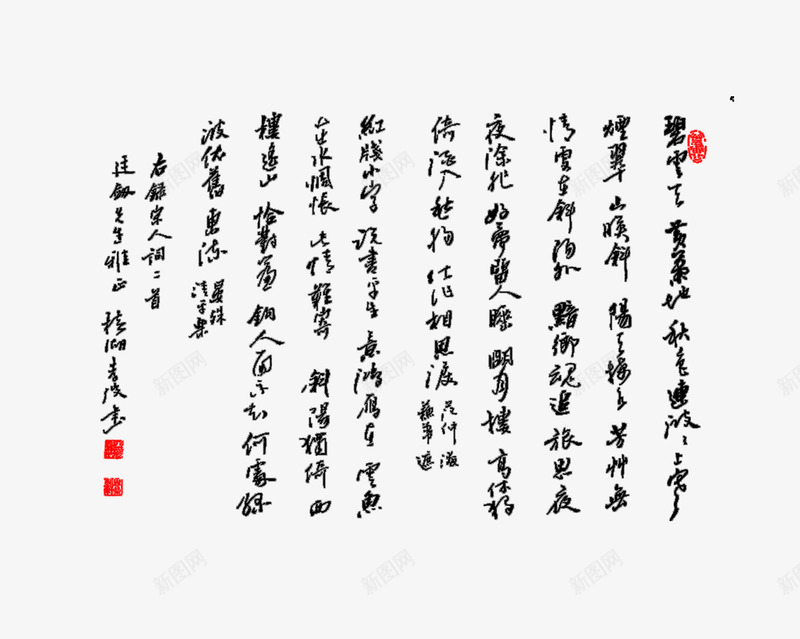 碧雲天黄葉地秋色連波波上寒
煙翠山映斜陽天接水芳艸無
情更在斜陽外黯鄉魂追旅思夜
夜除非好夢留人睡明月樓高休獨
倚酒入愁腸化作相思淚
范仲淹
蘇幕遮
紅牋小字說盡平生意鴻雁在雲魚
在水惆悵此情難寄斜陽獨倚西
樓遥山恰對簾鉤人面不知何處綠
波依舊東流
晏殊
清平樂
右錄宋人詞二首
廷劔先生雅正
新图网